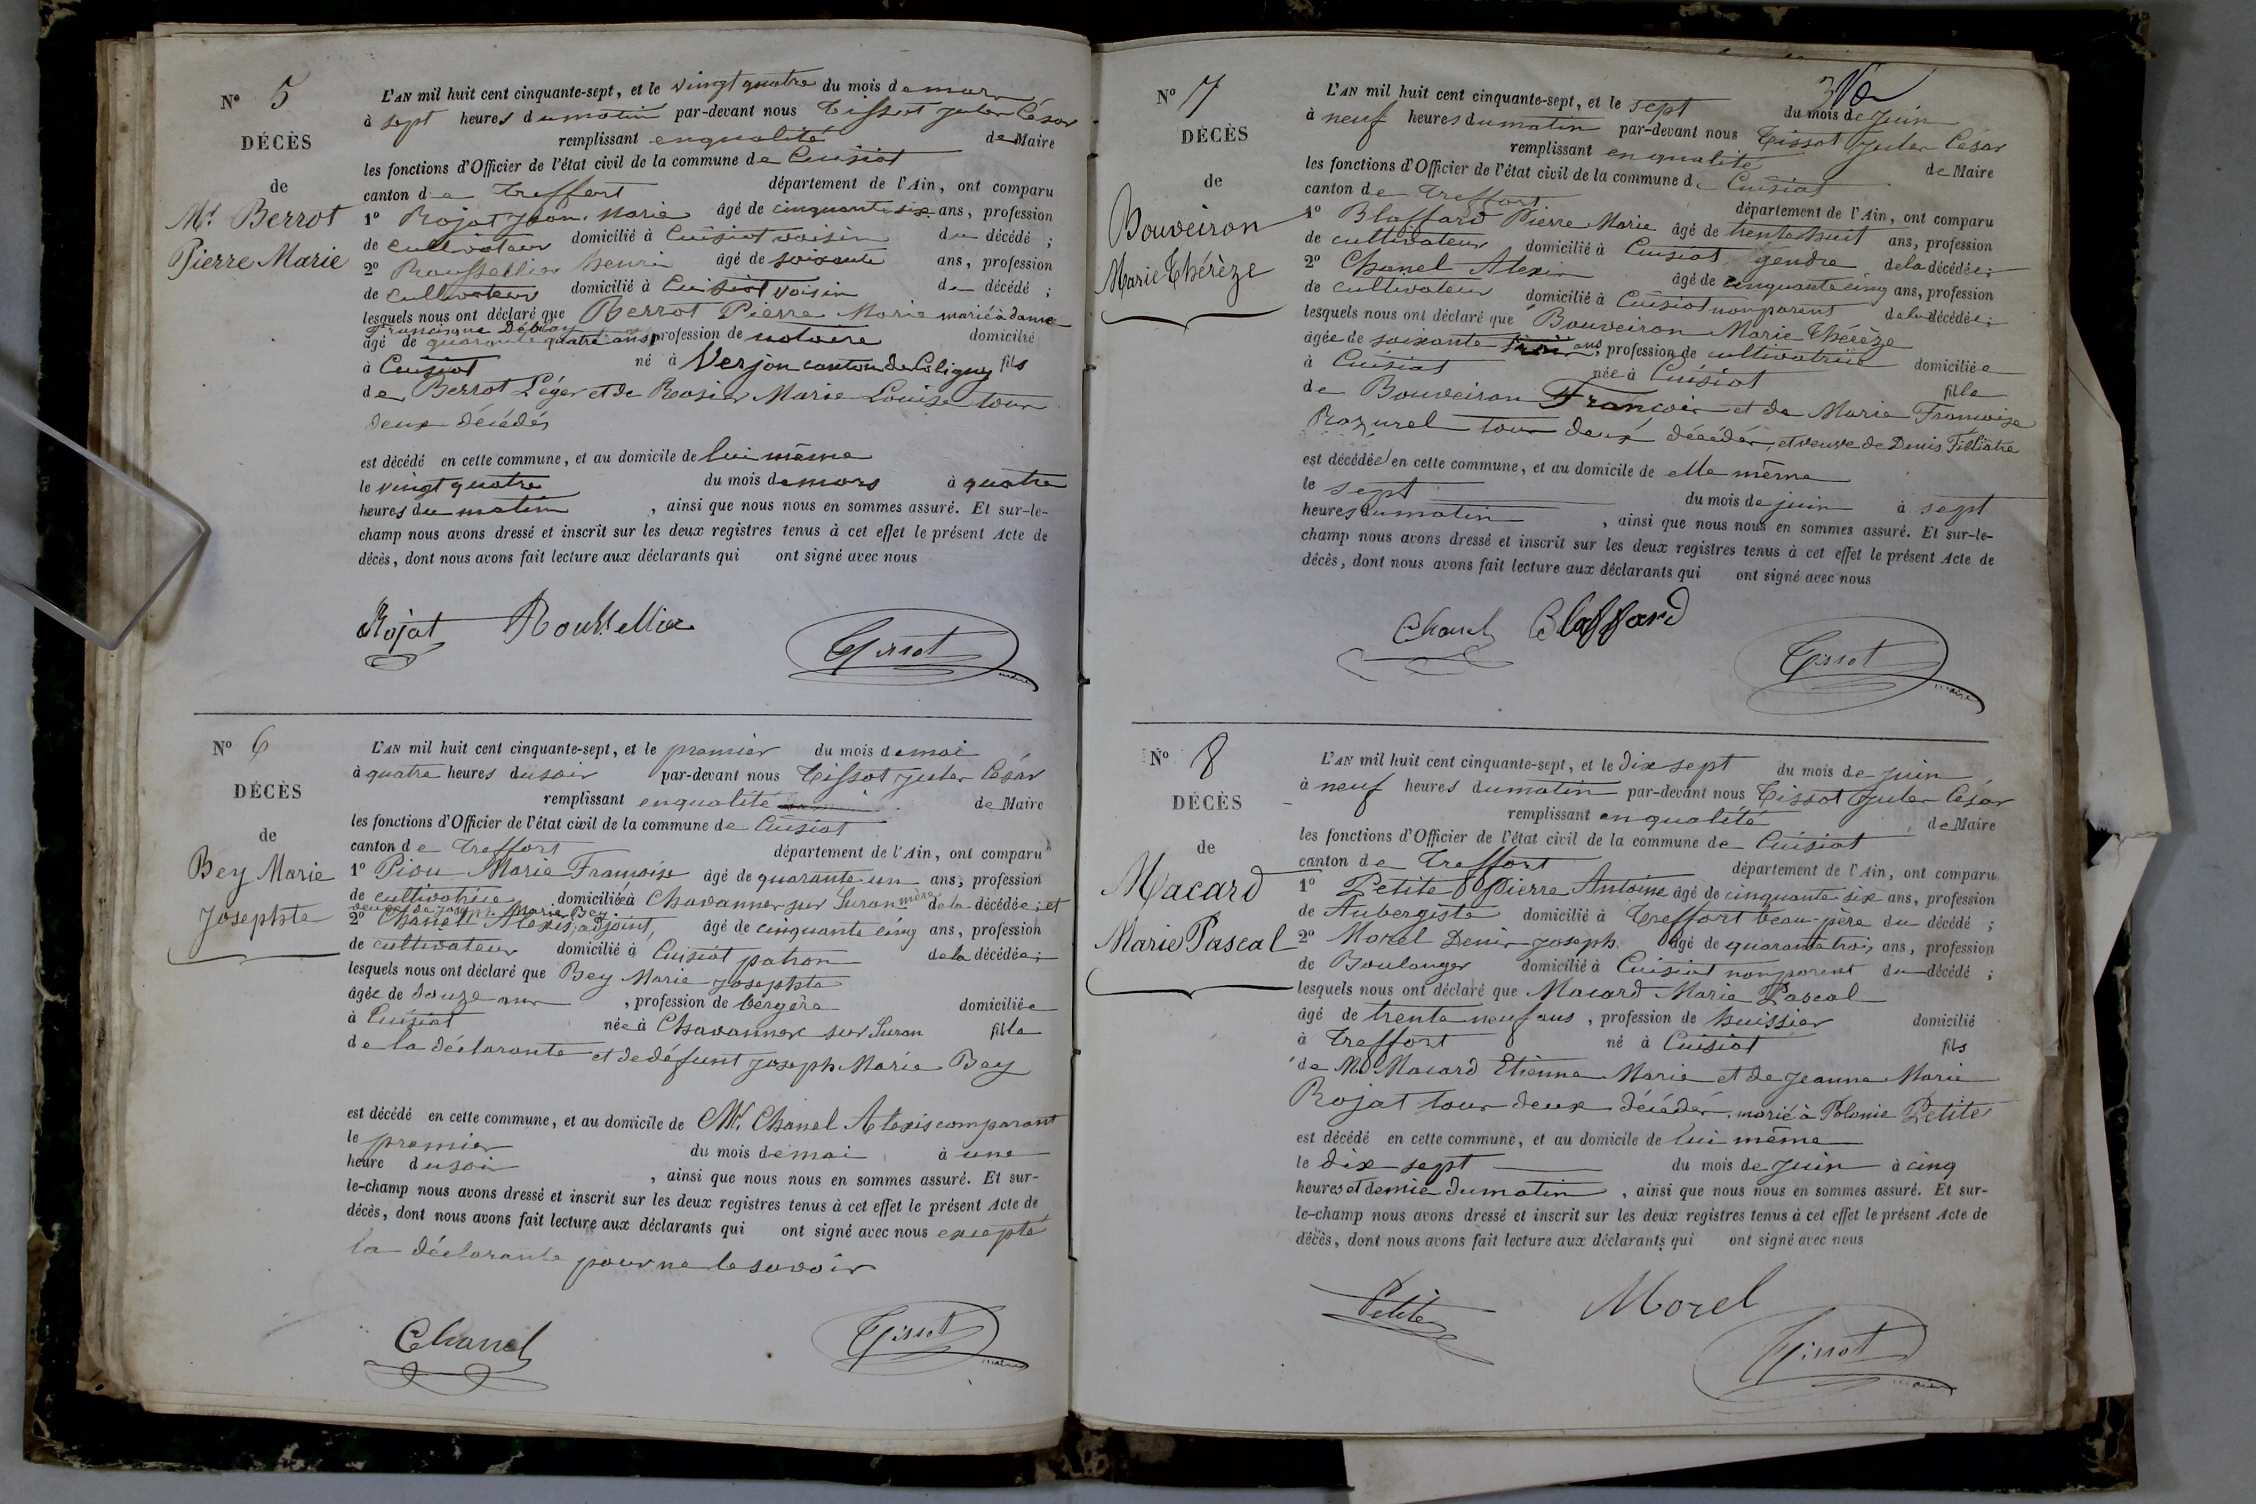 Nº 5
DÉCÈS
de
Mr Berrot
Pierre Marie
L'AN mil huit cent cinquante-sept, et le vingt quatre du mois de mars
à sept heures du matin par-devant nous Tissot Jules César
remplissant en qualité de Maire
les fonctions d'Officier de l'état civil de la commune de Cuisiat
canton de Treffort département de l'Ain, ont comparu
1º Rojat Jean Marie âgé de cinquante six ans, profession
de cultivateur domicilié à Cuisiat voisin du décédé ;
2º Roussellier henri âgé de soixante ans, profession
de cultivateur domicilié à Cuisiat voisin du décédé ;
lesquels nous ont déclaré que Berrot Pierre Marie marié à dame
Francisque Débeay
âgé de quarante quatre ans, profession de notaire domicilié
à Cuisiat né à Verjon canton de Coligny fils
de Berrot Léger et de Rosier Marie Louise tous
deux décédés
est décédé en cette commune, et au domicile de lui même
le vingt quatre du mois de mars à quatre
heures du matin , ainsi que nous nous en sommes assuré. Et sur-le-
champ nous avons dressé et inscrit sur les deux registres tenus à cet effet le présent Acte de
décès, dont nous avons fait lecture aux déclarants qui ont signé avec nous
Rojat Roussellier Tissot
maire
Nº 6
DÉCÈS
de
Bey Marie
Josephte
L'AN mil huit cent cinquante-sept, et le premier du mois de mai
à quatre heures du soir par-devant nous Tissot Jules César
remplissant en qualité de Maire
les fonctions d'Officier de l'état civil de la commune de Cuisiat
canton de Treffort département de l'Ain, ont comparu
1º Piou Marie Françoise âgé de quarante un ans, profession
de cultivatrice domiciliée à Chavannes sur Suran mère de la décédée ; et
veuve de Joseph Marie Bey
2º Chanel Alexis, adjoint, âgé de cinquante cinq ans, profession
de cultivateur domicilié à Cuisiat patron de la décédée ;
lesquels nous ont déclaré que Bey Marie Josephte
âgée de douze ans , profession de bergère domiciliée
à Cuisiat née à Chavannes sur Suran fille
de la déclarante et de défunt Joseph Marie Bey
est décédé en cette commune, et au domicile de Mr. Chanel Alexis comparant
le premier du mois de mai à une
heure du soir , ainsi que nous nous en sommes assuré. Et sur-
le-champ nous avons dressé et inscrit sur les deux registres tenus à cet effet le présent Acte de
décès, dont nous avons fait lecture aux déclarants qui ont signé avec nous excepté
la déclarante pour ne le savoir
Chanel Tissot
maire
Nº 7
DÉCÈS
de
Bouveiron
Marie Thérèze
L'AN mil huit cent cinquante-sept, et le sept du mois de juin
à neuf heures du matin par-devant nous Tissot Jules César
remplissant en qualité de Maire
les fonctions d'Officier de l'état civil de la commune de Cuisiat
canton de Treffort département de l'Ain, ont comparu
1º Blaffard Pierre Marie âgé de trente huit ans, profession
de cultivateur domicilié à Cuisiat gendre de la décédée ;
2º Chanel Alexis âgé de cinquante cinq ans, profession
de cultivateur domicilié à Cuisiat non parent de la décédée ;
lesquels nous ont déclaré que Bouveiron Marie Thérèze
âgée de soixante trois ans, profession de cultivatrice domiciliée
à Cuisiat née à Cuisiat fille
de Bouveiron François et de Marie Françoise
Razurel tous deux décédés, et veuve de Denis Filliâtre
est décédée en cette commune, et au domicile de elle même
le sept du mois de juin à sept
heures du matin , ainsi que nous nous en sommes assuré. Et sur-le-
champ nous avons dressé et inscrit sur les deux registres tenus à cet effet le présent Acte de
décès, dont nous avons fait lecture aux déclarants qui ont signé avec nous
Chanel Blaffard
Tissot
maire
Nº 8
DÉCÈS
de
Macard
Marie Pascal
L'AN mil huit cent cinquante-sept, et le dix sept du mois de juin
à neuf heures du matin par-devant nous Tissot Jules César
remplissant en qualité de Maire
les fonctions d'Officier de l'état civil de la commune de Cuisiat
canton de Treffort département de l'Ain, ont comparu
1º Petite Pierre Antoine âgé de cinquante six ans, profession
de Aubergiste domicilié à Treffort beau-père du décédé ;
2º Morel Denis Joseph âgé de quarante trois ans, profession
de Boulanger domicilié à Cuisiat non parent du décédé ;
lesquels nous ont déclaré que Macard Marie Pascal
âgé de trente neuf ans , profession de huissier domicilié
à Treffort né à Cuisiat fils
de Macard Etienne Marie et de Jeanne Marie
Rojat tous deux décédés, marié à Polonie Petite
est décédé en cette commune, et au domicile de lui même
le dix sept du mois de juin à cinq
heures et demie du matin , ainsi que nous nous en sommes assuré. Et sur-
le-champ nous avons dressé et inscrit sur les deux registres tenus à cet effet le présent Acte de
décès, dont nous avons fait lecture aux déclarants qui ont signé avec nous
Petite Morel
Tissot
maire